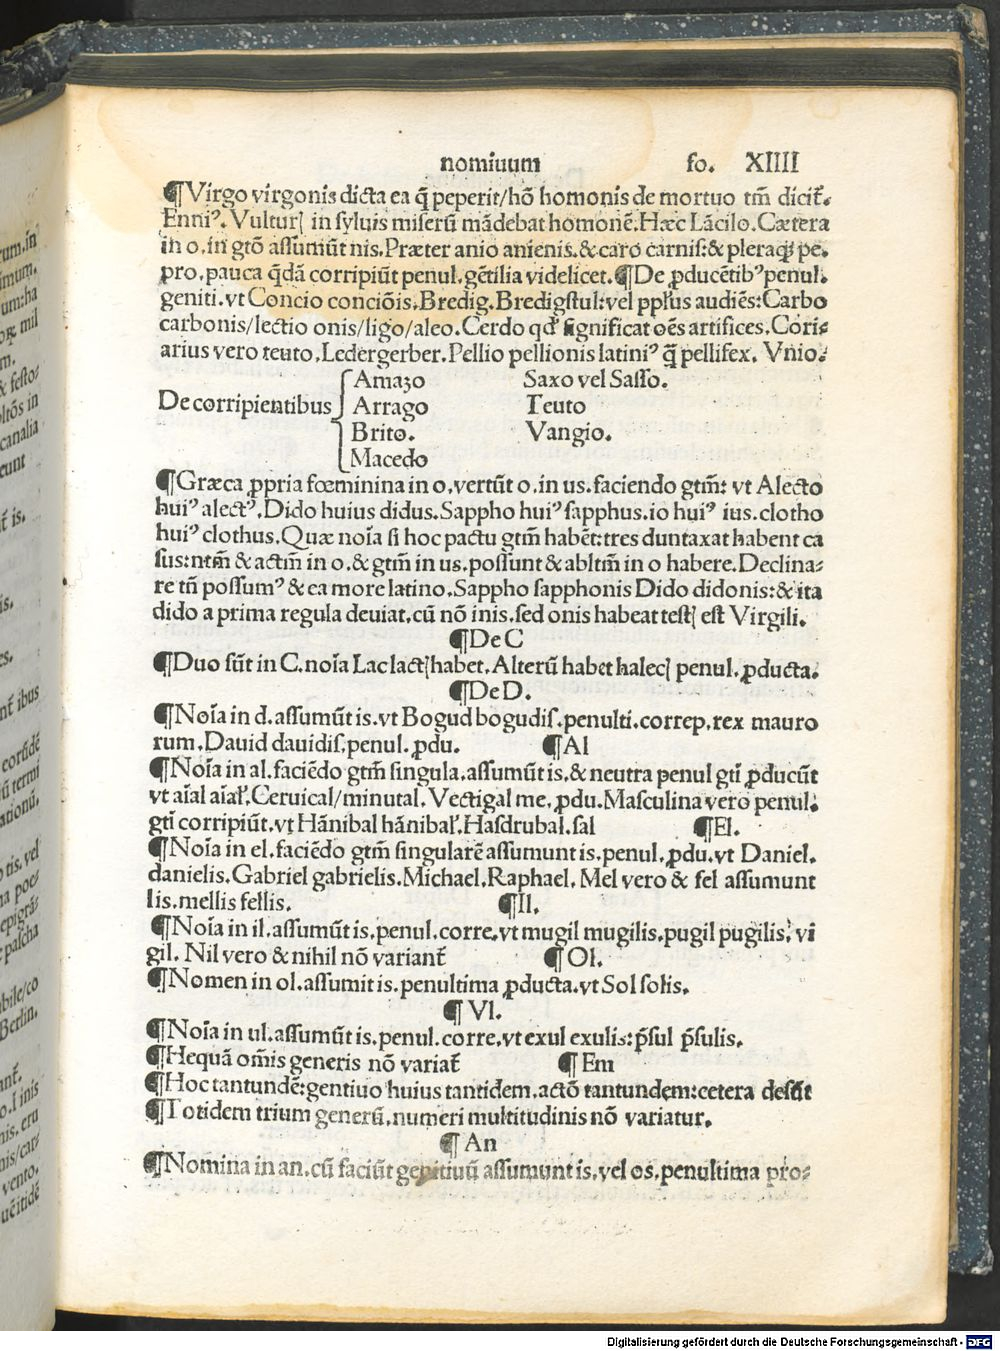 nomiuum fo. XIIII
¶Virgo virgonis dicta ea q̃ peperit/hõ homonis de mortuo tm̃ dicit᷑.
Enniꝰ. Vulturꝭ in syluis miserũ mãdebat homonẽ. Hæc Lãcilo. Cætera
in o, in gtõ assumũt nis. Præter anio anienis. & caro carnis: & pleraqꝫ pe⸗
pro, pauca q̃dã corripiũt penul. gẽtilia videlicet. ¶De ꝓducẽtibꝰ penul.
geniti. vt Concio conciõis. Bredig. Bredigstul: vel ppl̃us audiẽs: Carbo
carbonis/lectio onis/ligo/aleo. Cerdo qd̕ significat oẽs artifices. Cori⸗
arius vero teuto. Ledergerber. Pellio pellionis latiniꝰ q̃ pellifex. Vnio.
De corripientibus
Amazo Saxo vel Sasso.
Arrago Teuto
Brito. Vangio.
Macedo
¶Græca ꝓpria fœminina in o, vertũt o. in us. faciendo gtm̃: vt Alecto
huiꝰ alectꝰ. Dido huius didus. Sappho huiꝰ sapphus. io huiꝰ ius. clotho
huiꝰ clothus. Quæ noĩa si hoc pactu gtm̃ habẽt: tres duntaxat habent ca
sus: ntm̃ & actm̃ in o. & gtm̃ in us. possunt & abltm̃ in o habere. Declina⸗
re tñ possumꝰ & ea more latino. Sappho sapphonis Dido didonis: & ita
dido a prima regula deuiat. cũ nõ inis. sed onis habeat testꝭ est Virgili.
¶De C
¶Duo sũt in C. noĩa Lac lactꝭ habet. Alterũ habet halecꝭ penul. ꝓducta.
¶De D.
¶Noĩa in d. assumũt is. vt Bogud bogudis. penulti. correp. rex mauro
rum. Dauid dauidis. penul. ꝓdu. ¶Al
¶Noĩa in al. faciẽdo gtm̃ singula. assumũt is. & neutra penul gti ꝓducũt
vt aĩal aĩal̕. Ceruical/minutal. Vectigal me. ꝓdu. Masculina vero penul.
gti corripiũt. vt Hãnibal hãnibal̕. Hasdrubal. sal ¶El.
¶Noĩa in el. faciẽdo gtm̃ singularẽ assumunt is. penul. ꝓdu. vt Daniel.
danielis. Gabriel gabrielis. Michael. Raphael. Mel vero & fel assumunt
lis. mellis fellis. ¶Il.
¶Noĩa in il. assumũt is. penul. corre. vt mugil mugilis. pugil pugilis. vi
gil. Nil vero & nihil nõ variant᷑ ¶Ol.
¶Nomen in ol. assumit is. penultima ꝓducta. vt Sol solis.
¶Vl.
¶Noĩa in ul. assumũt is. penul. corre. vt exul exulis: p̃sul p̃sulis.
¶Hequã om̃is generis nõ variat᷑ ¶Em
¶Hoc tantundẽ: gentiuo huius tantidem. actõ tantundem: cetera desũt
¶Totidem trium generũ. numeri multitudinis nõ variatur.
¶An
¶Nomina in an. cũ faciũt genitiuũ assumunt is. vel os. penultima pro⸗
Digitalisierung gefördert durch die Deutsche Forschungsgemeinschaft - DFG